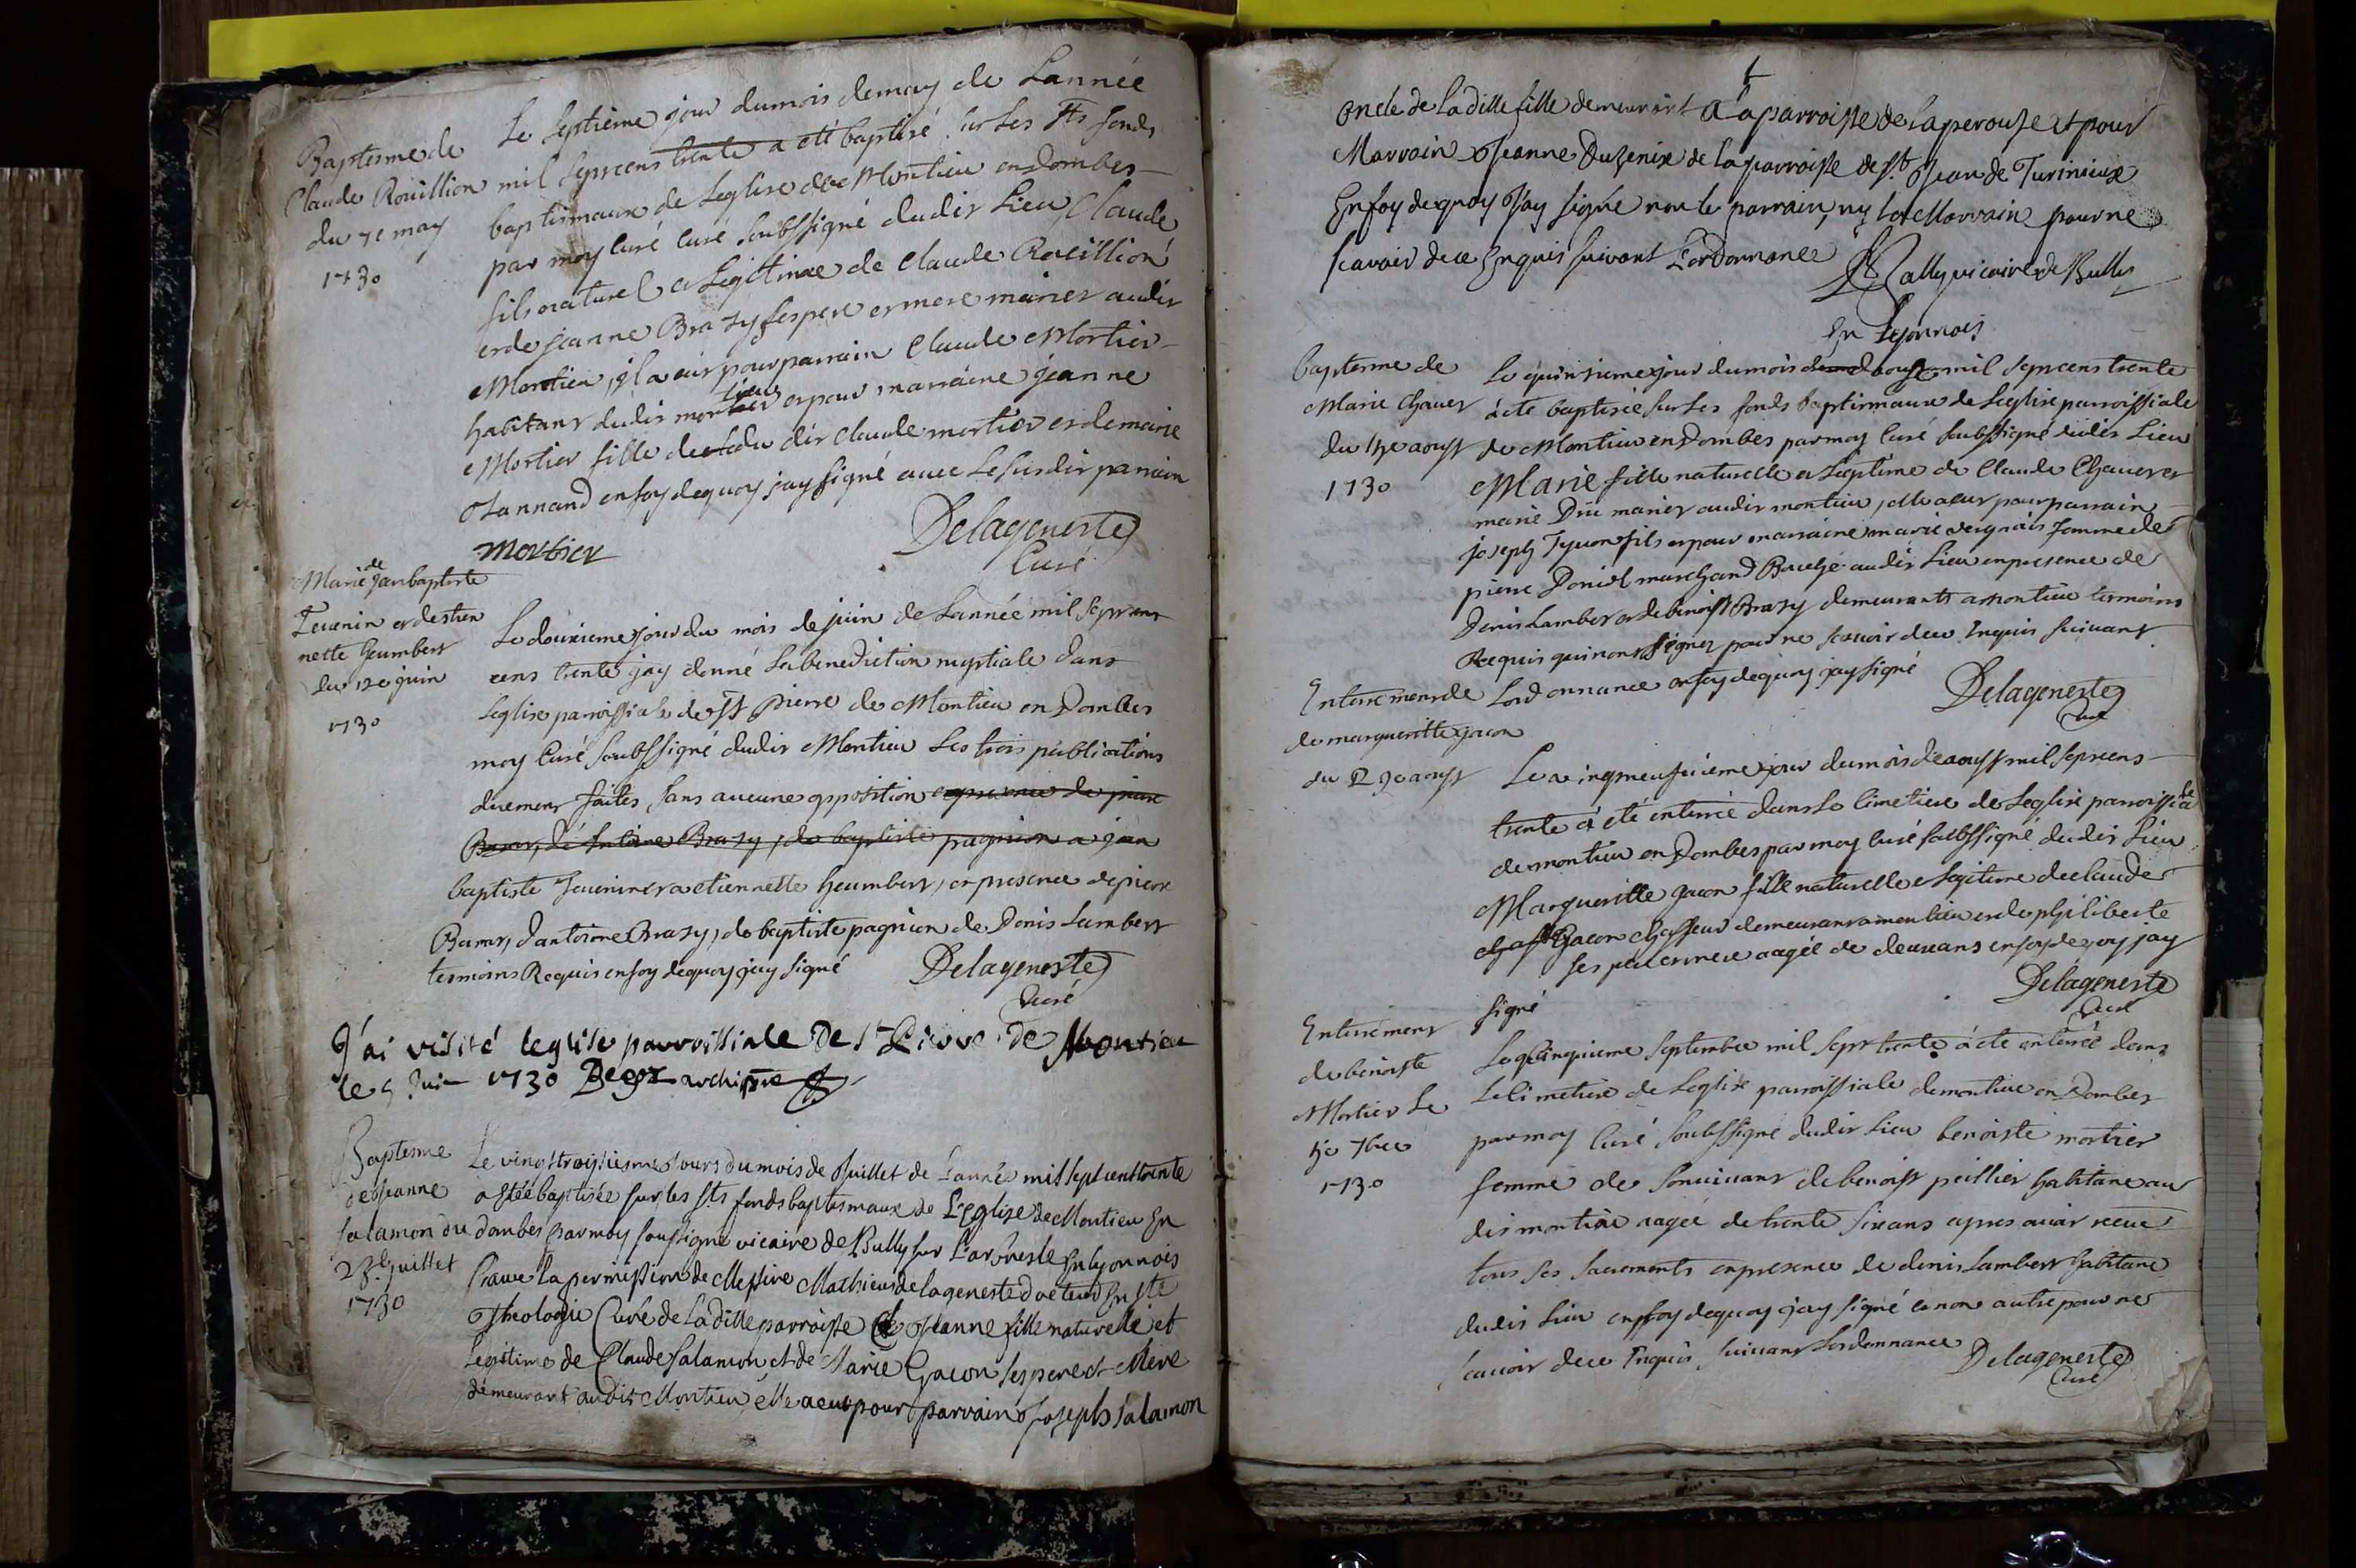 Baptesme de
Claude Roüillion
du 7e may
1730
Le septieme jour du mois de may de Lannée
mil sept cens trente a eté baptisé sur les sts fonds
baptismaux de Leglise de Montieu en Dombes
par moy curé curé soubssigné dudit Lieu, Claude
fils naturel et Legitime de Claude Roüillion
et de jeanne Brazy ses pere et mere mariez audit
Montieu, il a eu pour parrain Claude Mortier
habitant dudit montieu et pour marraine jeanne
Mortier fille de dudit Claude mortier et de marie
en foy dequoy jay signé avec Le susdit parrain
mortier
Delageneste
Curé
Marie de jan baptiste
Tevenin et destien
nette humbert
du 12e juin
1730
Le douzieme jour du mois de juin de Lannée mil sept cens
cens trente jay donné La benediction nuptiale dans
Leglise paroissiale de St pierre de Montieu en Dombes
moy Curé soubssigné dudit Montieu Les trois publications
duement faites sans aucune opposition en presence de pierre
de Antoine Brazy, de baptiste pagnion a jean
baptiste Tevenin et a etiennette humbert, en presence de pierre
d'antoine Brazy, de baptiste pagnion de Denis Lambert
temoins Requis en foy dequoy jay signé
Delageneste
Curé
J'ai visité leglise parroissiale de St Pierre de Montieu
le 5 Juin 1730 archiptre
Baptesme
de Jeanne
Salamon du
23e juillet
1730
Le vingt troizieme Jours du mois de Juillet de Lannée mil sept cent trente
a été baptisée sur les sts fonds baptismaux de L'Eglize de Montieu En
dombes par moy soussigné vicaire de Bully sur L'arbresle En lyonnois
avec la permission de Messire Mathieu de lageneste docteur En ste
Theologie Curé de La ditte parroisse Jeanne fille naturelle et
legitime de Claude Salamon et de Marie Gacon ses pere et Mere
demeurant audit Montieu elle a eut pour parrain Joseph Salamon
oncle de La ditte fille demeurant a La parroisse de Laperouse et pour
Marrain Jeanne Duzenix de La parroisse de st Jean de Turinieux
En foy dequoy J'ay signé non le parrain, ny La Marrain pour ne
scavoir de ce Enquis suivant L'ordonnance
Sally vicaire de Bully
En Lyonnois
baptesme de
Marie Chavet
du 15e aoust
1730
Le quinzieme jour du mois daoust mil sept cens trente
à eté baptisée sur Les fonds baptismaux de Leglise parroissiale
de Montieu en Dombes par moy Curé soubssigné dudit Lieu
Marie fille naturelle et Legitime de Claude Chavet et
marie Dru mariez audit montieu, elle a eu pour parrain
joseph Tyvon fils et pour marraine marie vergnais femme de
pierre Doniol marchand Bouche audit Lieu en presence de
Denis Lambert et de benoist Brazy demeurants a montieu temoins
Requis qui n'ont signez pour ne scavoir de ce Enquis suivant
Lordonnance en foy dequoy jay signé
Delageneste
Curé
Enterrement de
de margueritte gacon
du 29e aoust
Le vingt neufvieme jour du mois de aoust mil sept cens
trente à été enterrée dans Le Cimetiere de Leglise parroissiale
de montieu en Dombes par moy Curé soubssigné dudit Lieu
Marguerittte gacon fille naturelle et Legitime de claude
Gacon chasseur demeurant a montieu et de philiberte
ses pere et mere aagée de deux ans en foy dequoy jay
signé
Delageneste
Curé
Enterrement
de benoiste
Mortier Le
5e 7bre
1730
Le cinquieme septembre mil sept trente à eté enterrée dans
Le Cimetiere de Leglise parroissiale de montieu en Dombes
par moy Curé soubssigné dudit Lieu benoiste mortier
femme de son vivant de benoist peillier habitant au
dit montieu aagée de trente six ans apres avoir receu
tous ses sacrements en presence de denis Lambert habitant
dudit Lieu en foy dequoy jay signé et non autre pour ne
scavoir de ce Enquis suivant Lordonnance
Delageneste
Curé